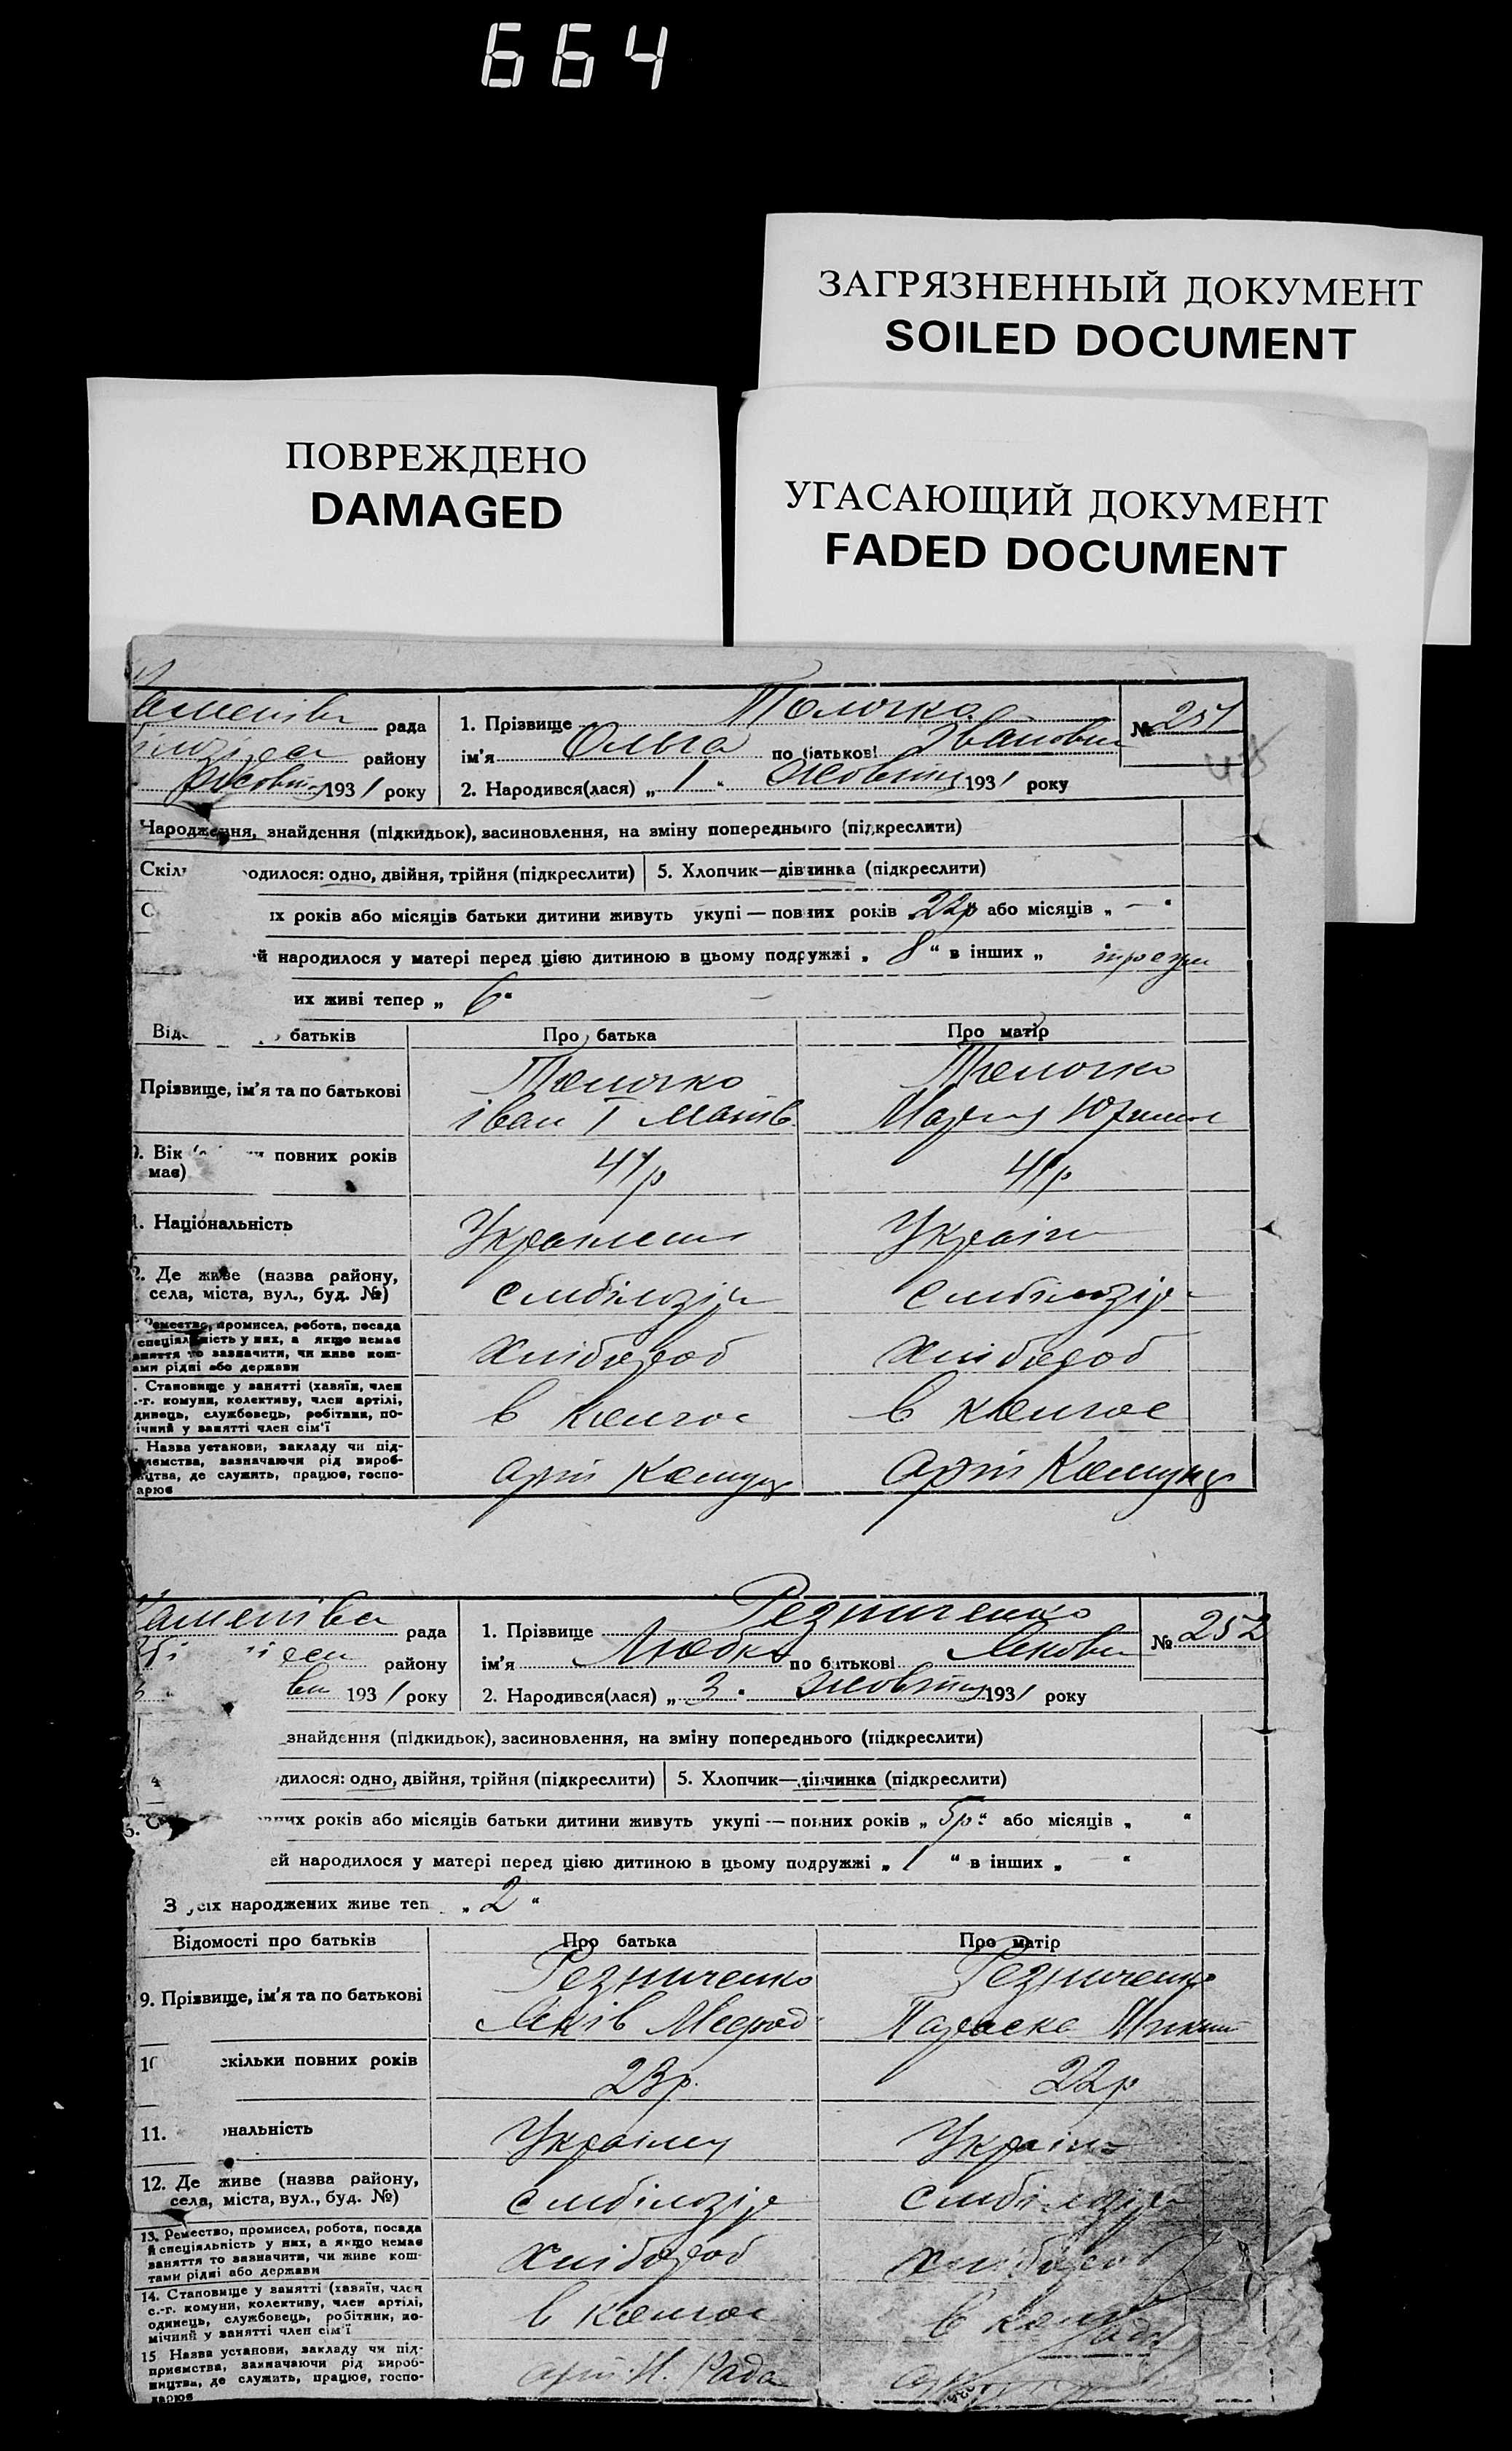 664
ЗАГРЯЗНЕННЫЙ ДОКУМЕНТ
SOILED DOCUMENT
ПОВРЕЖДЕНО
DAMAGED
УГАСАЮЩИЙ ДОКУМЕНТ
FADED DOCUMENT
рада
району
1931 року
1. Прізвище Толочко
ім'я Ольга по батькові Івановн
2. Народився(лася) „ 1 “ Жовтня 1931 року
№ 251
Народження, знайдення (підкидьок), засиновлення, на зміну попереднього (підкреслити)
одилося: одно, двійня, трійня (підкреслити) 5. Хлопчик—дівчинка (підкреслити)
их років або місяців батьки дитини живуть укупі — повних років „ 22р “ або місяців „ — “
й народилося у матері перед цією дитиною в цьому подружжі „ 8 “ в інших „
их живі тепер „ 6 “
батьків Про батька Про матір
Прізвище, ім'я та по батькові
Толочко
Іван
Толочко
Вік повних років
має)
41р
41р
Національність
Українец
Україн
Де живе (назва району,
села, міста, вул., буд. №)
Ремество, промисел, робота, посада
спеціяльність у них, а якщо немає
заняття то зазначити, чи живе кош-
ами рідні або держави
хлібороб хлібороб
Становище у занятті (хазяїн, член
с.-г. комуни, колективу, член артілі,
одинець, службовець, робітник, по-
мічний у занятті член сім'ї
в колгос в колгос
Назва установи, закладу чи під-
приємства, зазначаючи рід вироб-
ництва, де служить, працює, госпо-
дарює
рада
району
1931 року
1. Прізвище Резниченко
ім'я Любка по батькові Яковн
2. Народився(лася) „ 3 “ Жовтня 1931 року
№ 252
знайдення (підкидьок), засиновлення, на зміну попереднього (підкреслити)
дилося: одно, двійня, трійня (підкреслити) 5. Хлопчик—дівчинка (підкреслити)
вних років або місяців батьки дитини живуть укупі — повних років „ 5р “ або місяців „ “
ей народилося у матері перед цією дитиною в цьому подружжі „ 1 “ в інших „ — “
З усіх народжених живе теп „ 2 “
Відомості про батьків Про батька Про матір
9. Прізвище, ім'я та по батькові
Резниченко
Яків
Резниченко
Параска
скільки повних років
23р.
22р
11. ональність
Українец
Україн
12. Де живе (назва району,
села, міста, вул., буд. №)
13. Ремество, промисел, робота, посада
й спеціяльність у них, а якщо немає
заняття то зазначити, чи живе кош-
тами рідні або держави
хлібороб хлібороб
14. Становище у занятті (хазяїн, член
с.-г. комуни, колективу, член артілі,
одинець, службовець, робітник, по-
мічний у занятті член сім'ї
в колгос
15 Назва установи, закладу чи під-
приємства, зазначаючи рід вироб-
ництва, де служить, працює, госпо-
дарює
Рада